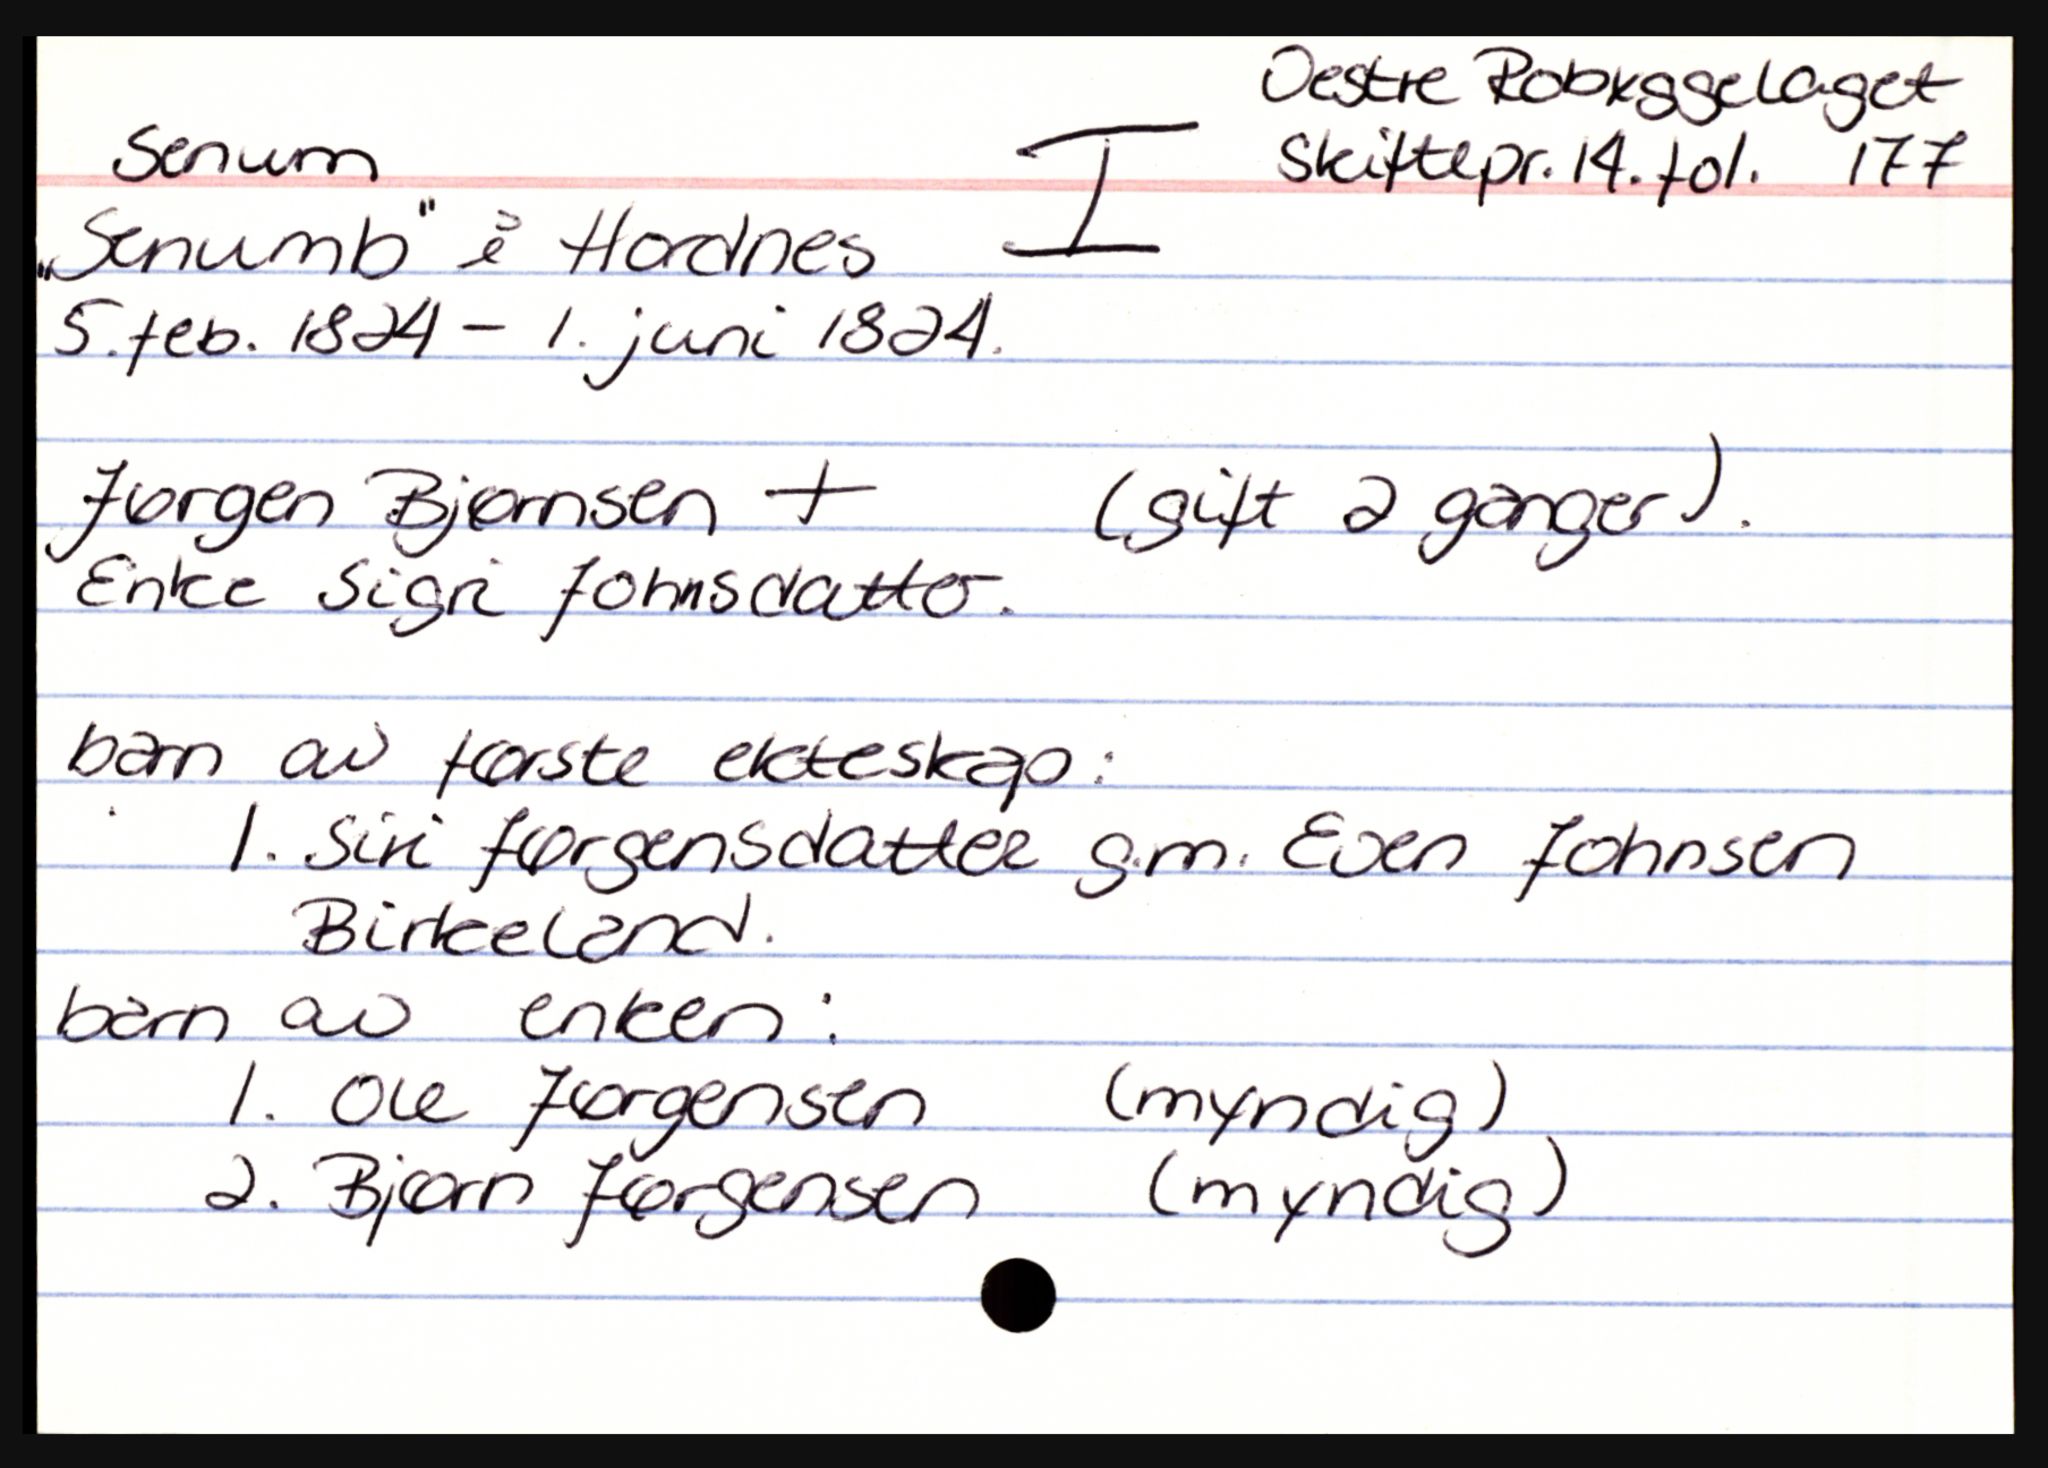 Oestre Robyggelaget
Senum I Skiftepr. 14. fol. 177
„Senumb" i Hordnes
5. feb. 1824 – 1. juni 1824.
Jørgen Bjørnsen + (gift 2 ganger).
Enke Sigri Johnsdatter.
barn av første ekteskap:
1. Siri Jørgensdatter g.m. Even Johnsen
Birkeland.
barn av enken:
1. Ole Jørgensen (myndig)
2. Bjørn Jørgensen (myndig)